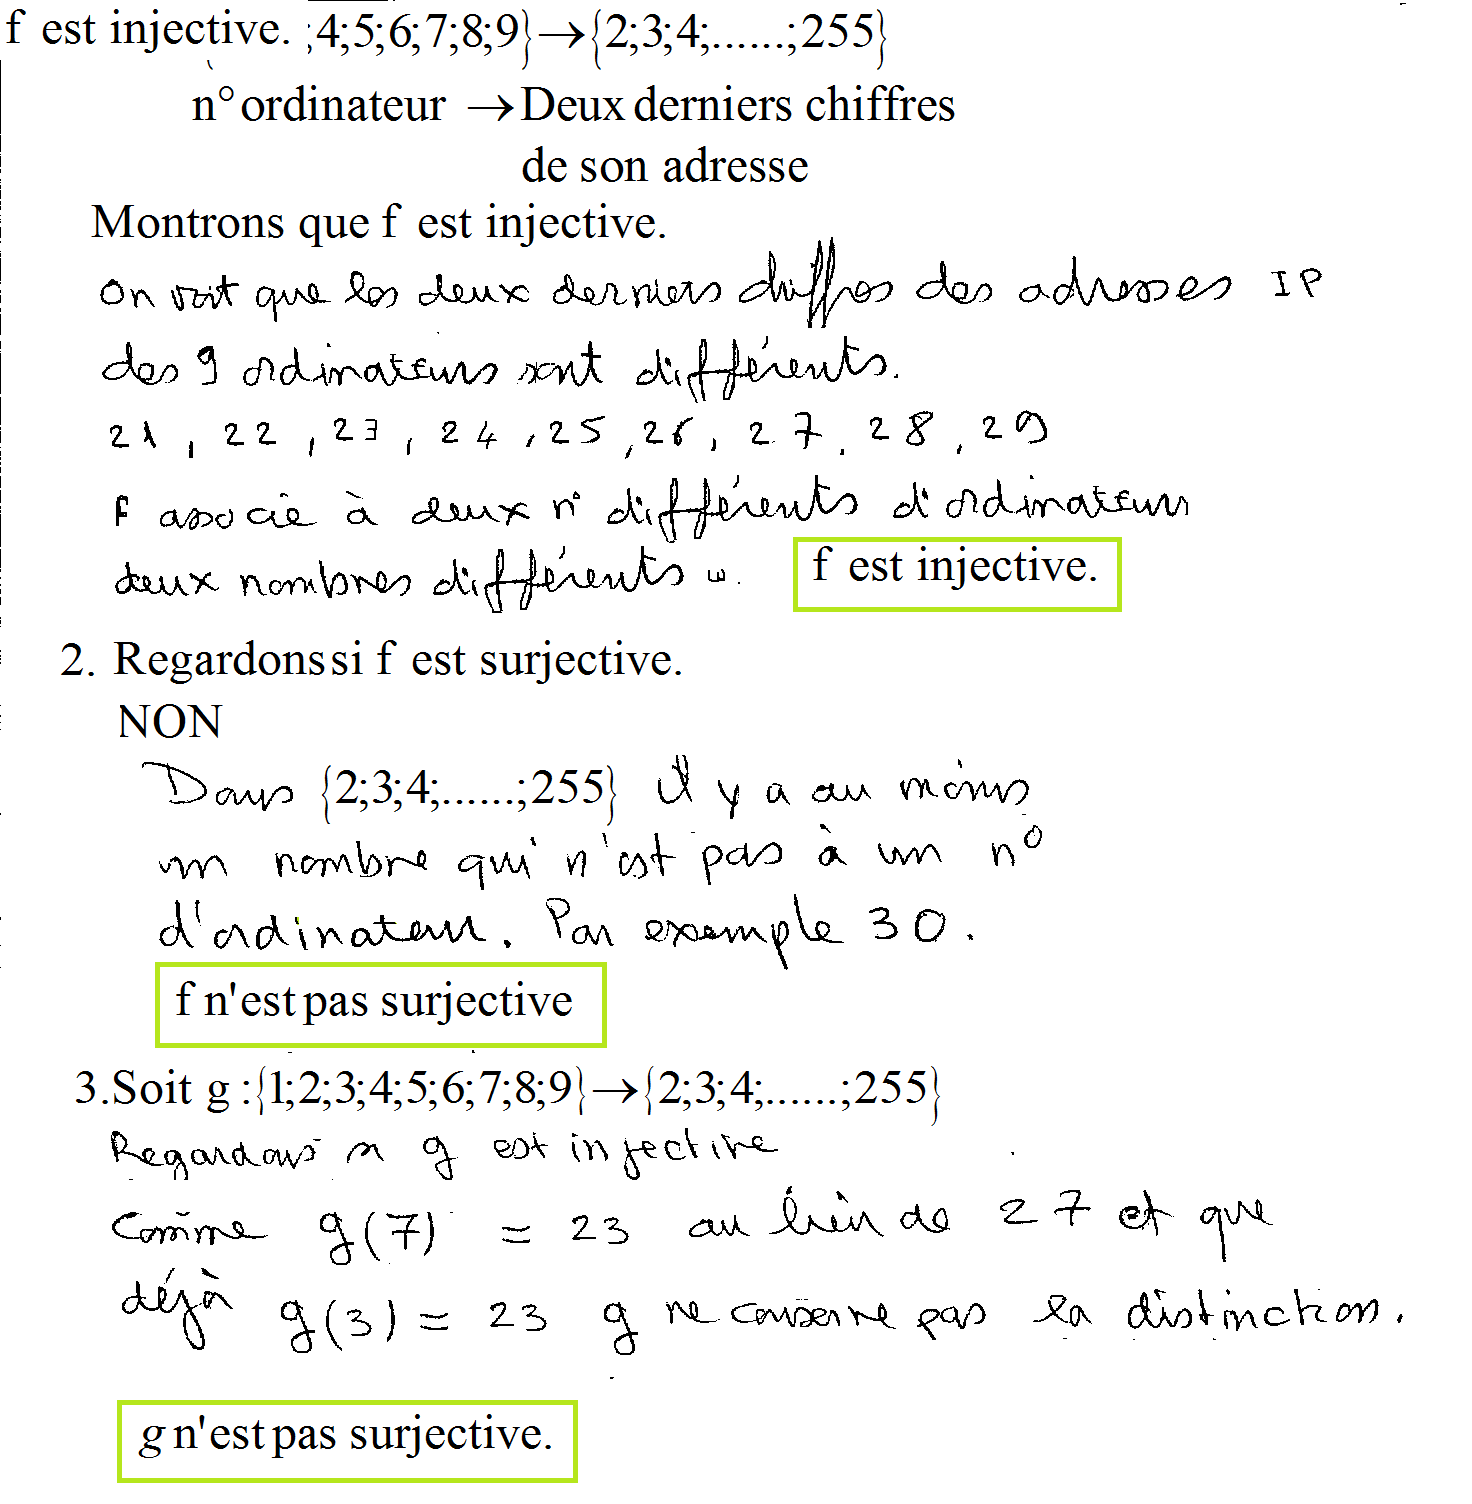 f est injective. ;4;5;6;7;8;9}→{2;3;4;......;255}
n° ordinateur → Deux derniers chiffres
de son adresse
Montrons que f est injective.
On voit que les deux derniers chiffres des adresses IP
des 9 ordinateurs sont différents.
21, 22, 23, 24, 25, 26, 27, 28, 29
f associe à deux n° différents d'ordinateurs
deux nombres différents
f est injective.
2. Regardons si f est surjective.
NON
Dans {2;3;4;......;255} il y a au moins
un nombre qui n'est pas à un n°
d'ordinateur. Par exemple 30.
f n'est pas surjective
3.Soit g :{1;2;3;4;5;6;7;8;9}→{2;3;4;......;255}
Regardons si g est injective
Comme g(7) = 23 au lieu de 27 et que
déjà g(3) = 23 g ne conserve pas la distinction.
g n'est pas surjective.